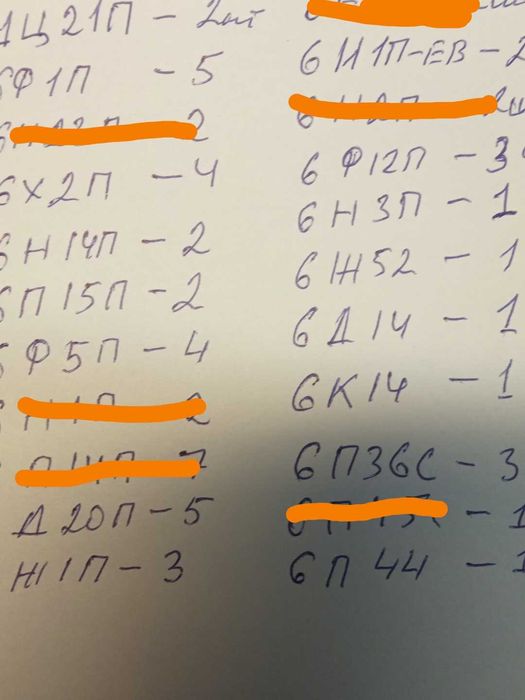 1Ц21П - 2шт
6Ф1П - 5
2
6Х2П - 4
6Н14П - 2
6П15П - 2
6Ф5П - 4
2
7
Д20П - 5
Ж1П - 3
6Н1П-ЕВ - 2
6Ф12П - 3
6Н3П - 1
6Ж52 - 1
6Д14 - 1
6К14 - 1
6П36С - 3
- 1
6П44 - 1